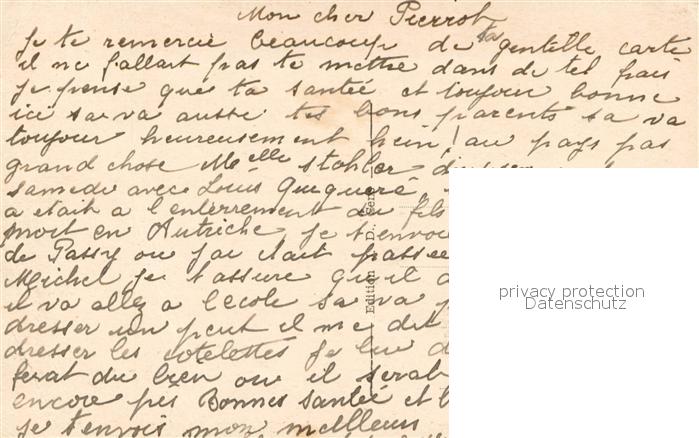 Mon cher Pierrot
Je te remercie beaucoup de ta gentille carte
il ne fallait pas te mettre dans de tel frais
je pense que ta santée et toujour bonne
ici sa va aussi tes bons parents sa va
toujour heureusement hein! au pays pas
grand chose Melle stohler
samedi avec Louis
a etait a l'enterrement du fils
mort en Autriche je t'envoi
de Passy ou j'ai etait
Michel je t'assure qu'il
il va allez a l'école sa va
dresser un peut il me dit
dresser les cotelettes je lui
ferat du bien ou il serat
encore pis Bonnes santée et
je t'envois mon meilleurs
Edition D., Gen
privacy protection
Datenschutz